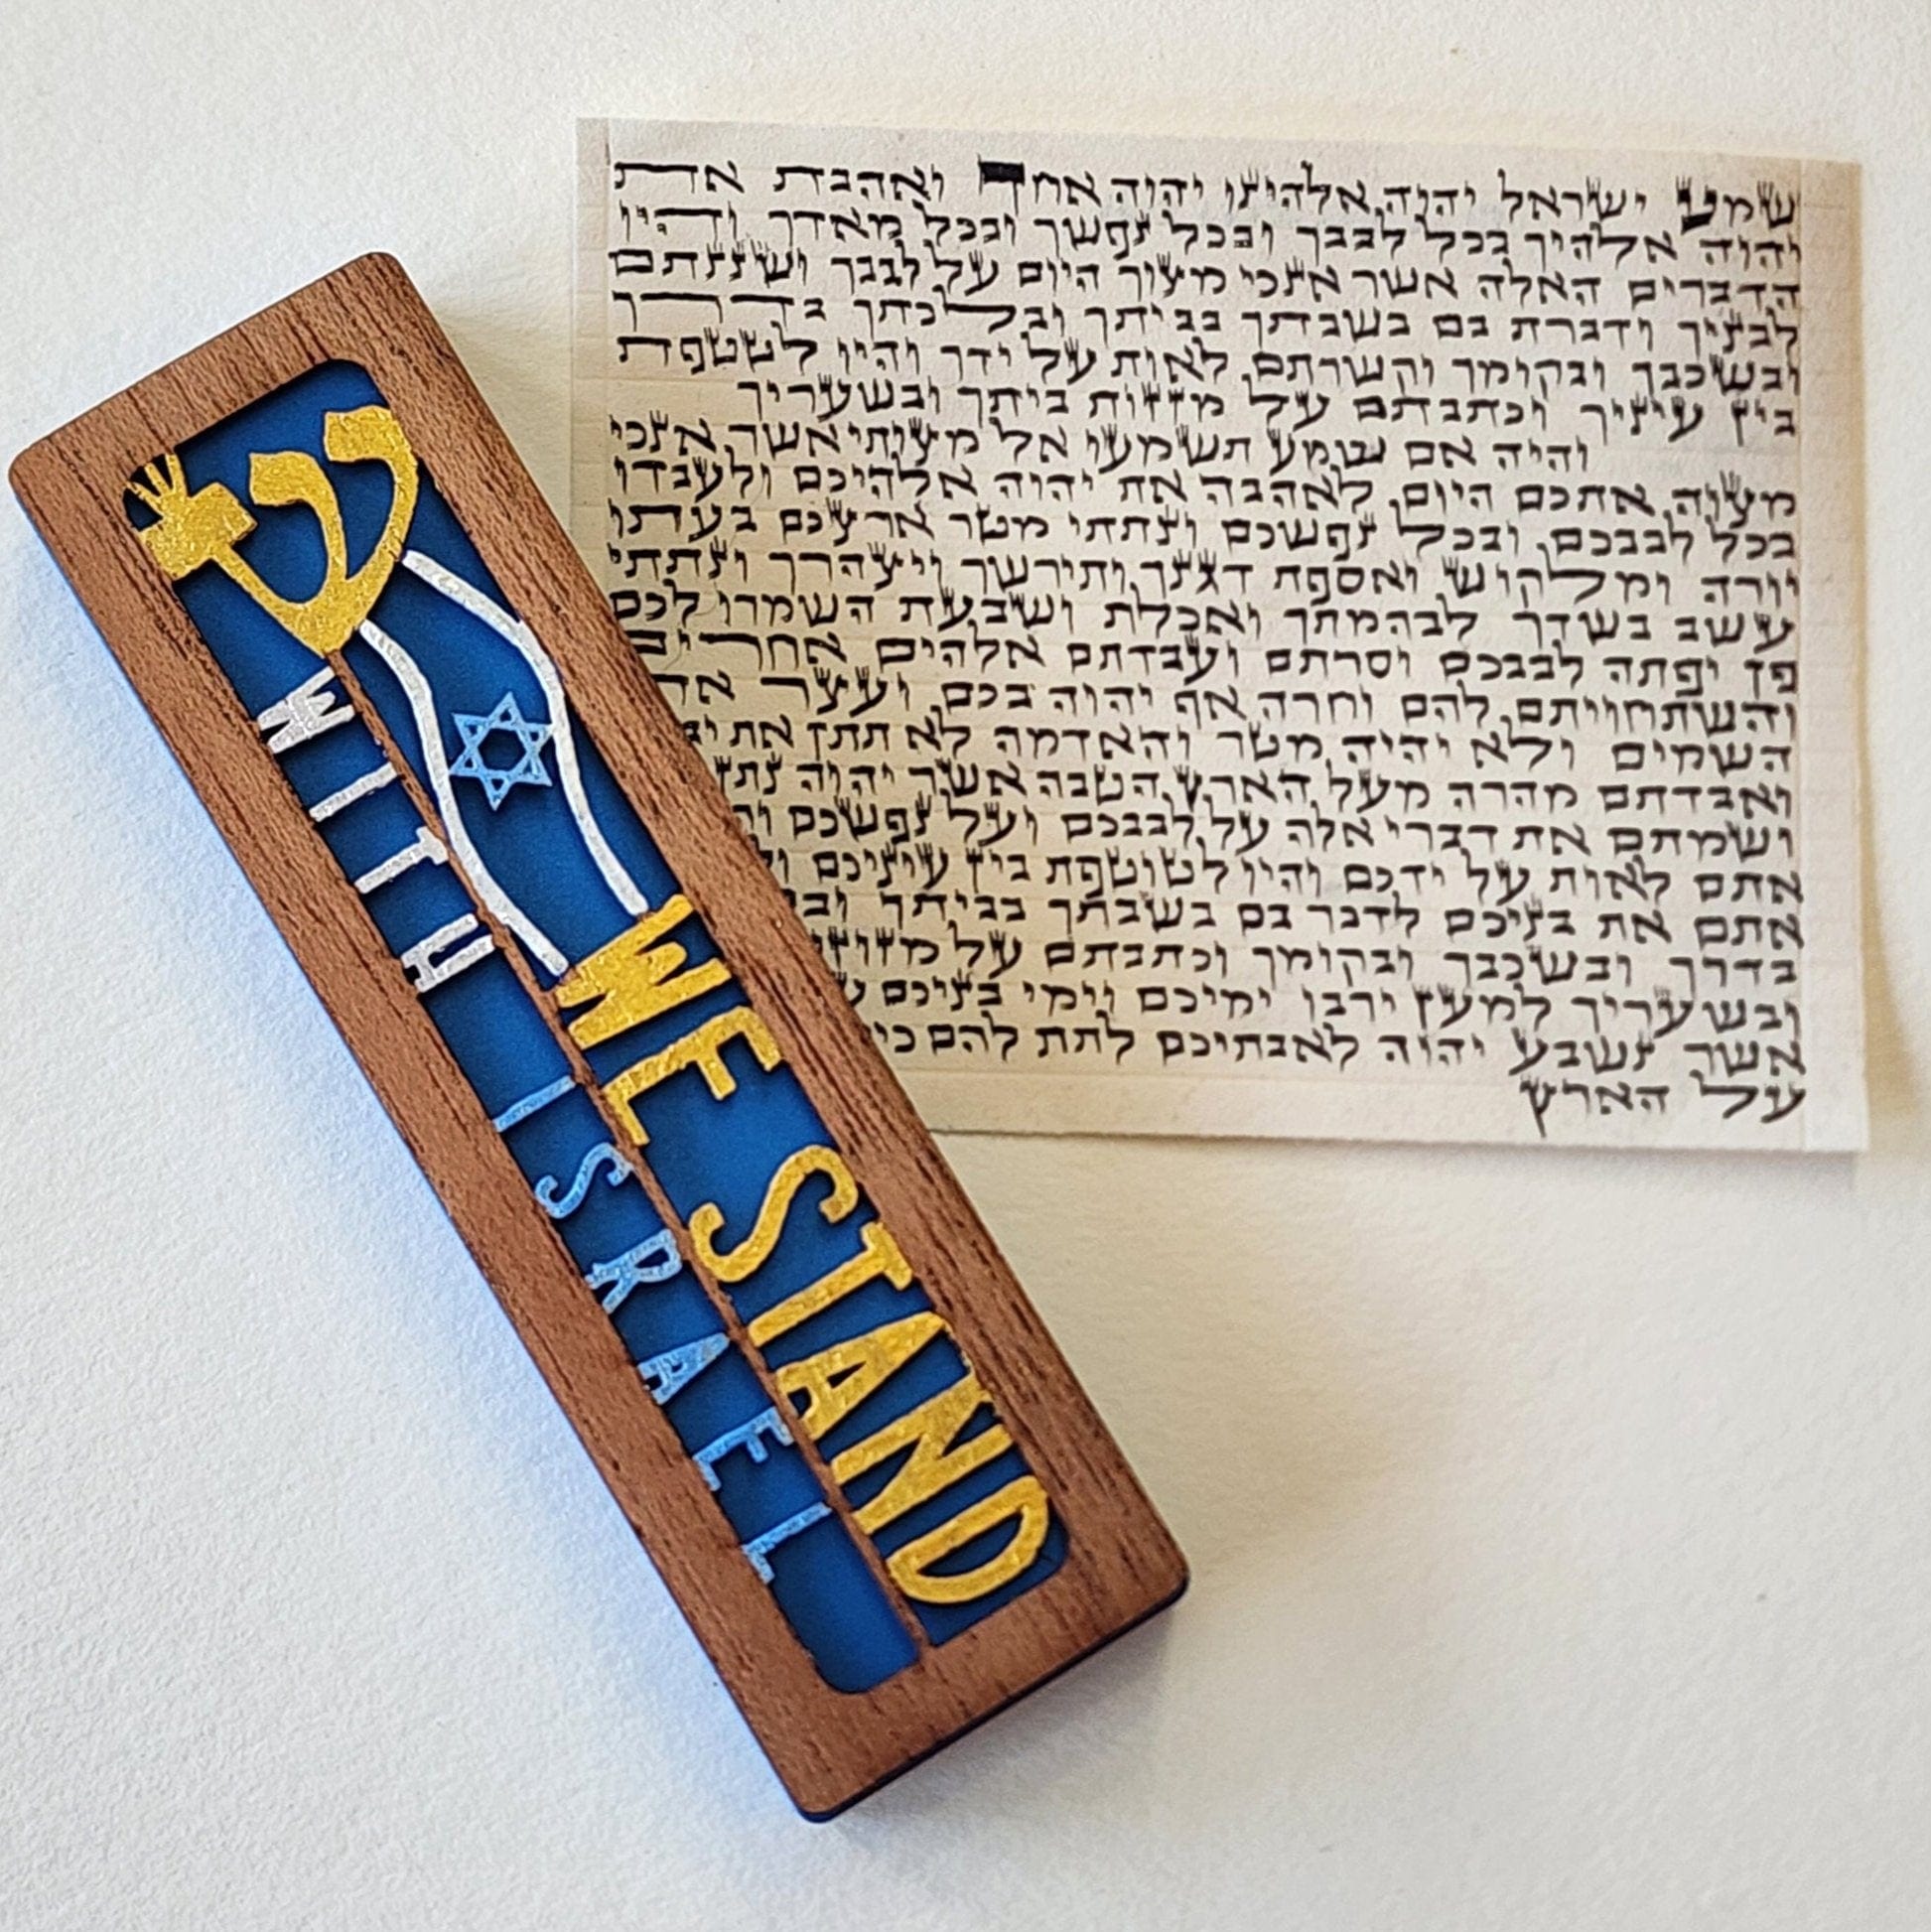 ש
WE STAND
WITH ISRAEL
שמע ישראל יהוה אלהינו יהוה אחד ואהבת את
יהוה אלהיך בכל לבבך ובכל נפשך ובכל מאדך והיו
הדברים האלה אשר אנכי מצוך היום על לבבך ושננתם
לבניך ודברת בם בשבתך בביתך ובלכתך בדרך
ובשכבך ובקומך וקשרתם לאות על ידך והיו לטטפת
בין עיניך וכתבתם על מזזות ביתך ובשעריך
והיה אם שמע תשמעו אל מצותי אשר אנכי
מצוה אתכם היום לאהבה את יהוה אלהיכם ולעבדו
בכל לבבכם ובכל נפשכם ונתתי מטר ארצכם בעתו
יורה ומלקוש ואספת דגנך ותירשך ויצהרך ונתתי
עשב בשדך לבהמתך ואכלת ושבעת השמרו לכם
פן יפתה לבבכם וסרתם ועבדתם אלהים אחרים
והשתחויתם להם וחרה אף יהוה בכם ועצר את
השמים ולא יהיה מטר והאדמה לא תתן את
ואבדתם מהרה מעל הארץ הטבה אשר יהוה נתן
ושמתם את דברי אלה על לבבכם ועל נפשכם
אתם לאות על ידכם והיו לטוטפת בין עיניכם
אתם את בניכם לדבר בם בשבתך בביתך
בדרך ובשכבך ובקומך וכתבתם על
ובשעריך למען ירבו ימיכם וימי בניכם
אשר נשבע יהוה לאבתיכם לתת להם
על הארץ